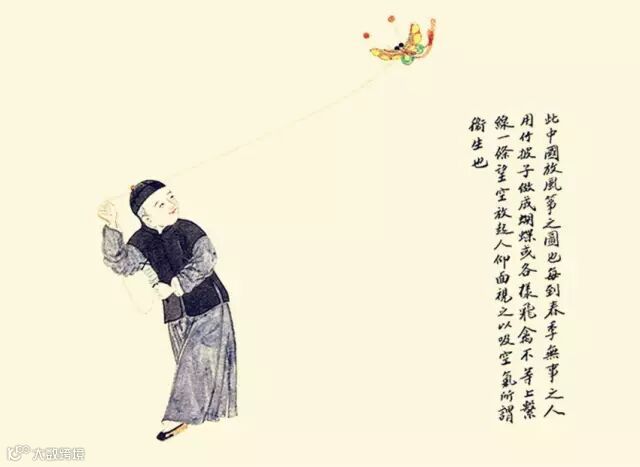 此中國放風箏之圖也每到春季無事之人
用竹披子做成蝴蝶或各樣飛禽不等上繫
線一條望空放起人仰面視之以吸空氣所謂
衛生也
大数跨境